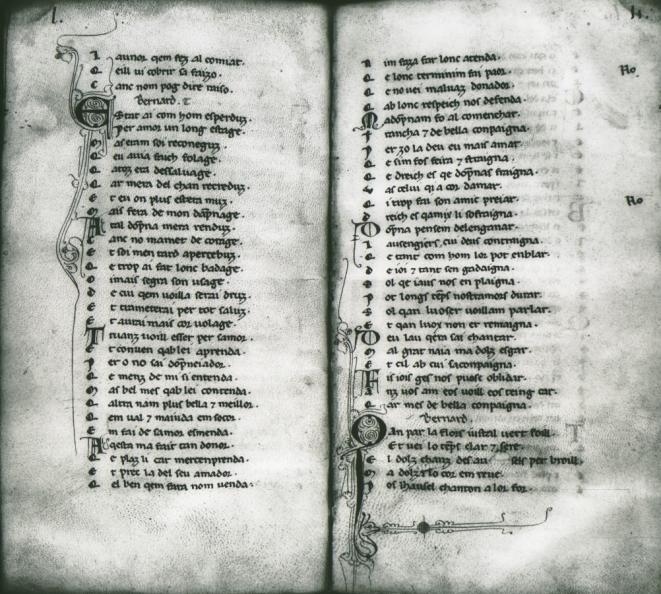 l.
aunor qem fez al comiat.
Q eill ui cobrir sa faizo.
C anc nom pog dire raiso.
Bernard. T
Estat ai com hom esperduz
Per amor un long estage.
M as eram soi reconeguz
Q eu auia faich folage.
ar mera del chan recreduz.
E t eu on plus estera muz.
M ais fera de mon dapnage.
A tal dopna mera renduz.
C anc no mamet de corage.
E t soi men tard apercebuz.
Q e trop ai fat lonc badage.
O imais segra son usage.
D e cui qem uoilla serai druz.
E t trameterai per tot saluz.
E t aurai mais cor uolage.
T ruanz uoill esser per samor.
E t conuen qab lei aprenda.
P er o no sai dopneiador.
Q e menz de mi si entenda.
M as bel mes qab lei contenda.
Q altra nam plus bella 7 meillor.
Q em ual 7 maiuda em socor.
E m fai de samor esmenda.
A questa ma fait tan donor.
Q e plaz li car mercenprenda.
E t prec la del seu amador.
Q el ben qem fara nom uenda.
im faza far lonc atenda.
Q e lonc terminim fai paor.
E no uei maluaz donador.
Q ab lonc respeich nos defenda.
M adopnam fo al comenchar.
Francha 7 de bella conpaigna.
P er zo la deu eu mais amar.
Q e sim fos feira 7 straigna.
Q e dreich es qe dopnas fraigna.
as celui qi a cor damar.
Q i trop fai son amic preiar.
D reich es qamix li sofraigna.
Dopna pensem delenganar.
L ausengiers cui deus contraigna.
Q e tant com hom lor pot enblar.
D e ioi 7 tant sen gadaigna.
ol qe iaus nos en plaigna.
P ot longs temps nostramors durar.
S ol qan luoser uoillam parlar.
E t qan luox non er remaigna.
D eu lau qera sai chantar.
M al grat naia ma dolz esgar.
E t cil ab cui saconpaigna.
F is iois ges nos puosc oblidar.
A nz uos am eos uoill eos teing car.
C ar mes de bella conpaigna.
Bernard.
Qan par la flors iustal uert foill.
Et uei lo temps clar 7 sere.
E l dolz chanz des au sels per broill.
M a dolz lo cor em reue.
P os lhausel chanton a lor for.
No
No